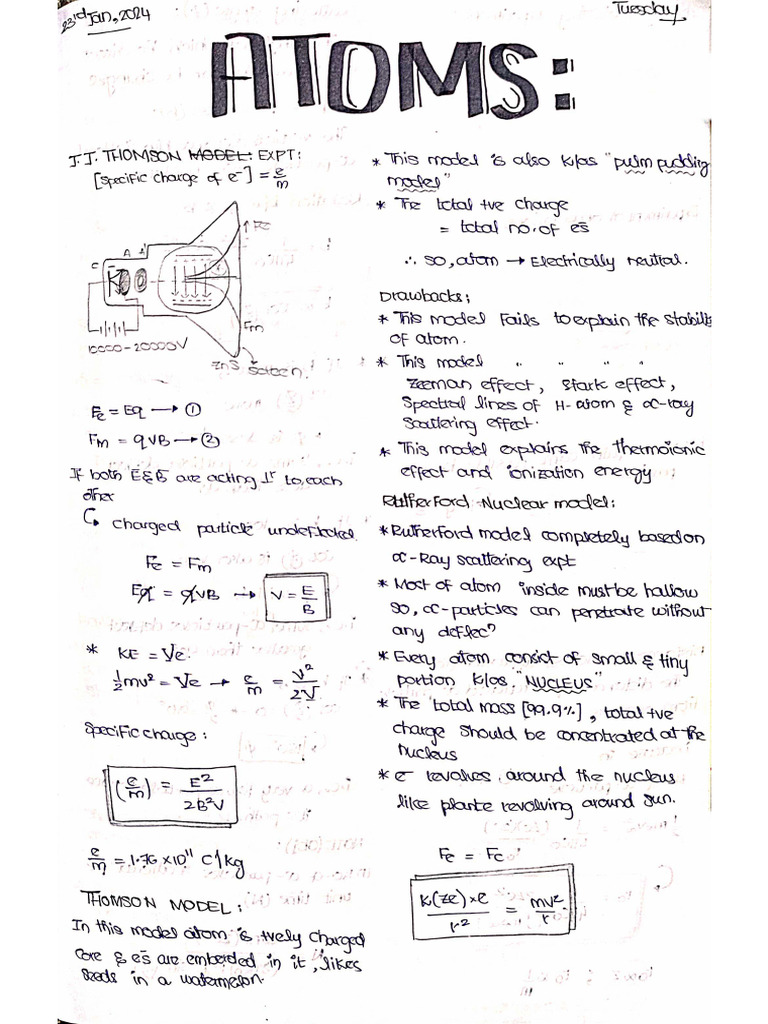 23rd Jan, 2024
Tuesday
ATOMS:
J.J. THOMSON MODEL: EXPT:
[Specific charge of e⁻] = e/m
C A A'
Fe
Fm
10000-20000V
ZnS Screen
Fe = Eq → ①
Fm = qVB → ②
If both E & B are acting ⊥r to each
other
↳ charged particle undeflected
Fe = Fm
Eq = qVB → V = E/B
* KE = Ve
1/2 mv² = Ve → e/m = V²/2V
Specific charge:
(e/m) = E²/2B²V
e/m = 1.76 × 10¹¹ C/kg
THOMSON MODEL:
In this model atom is +vely charged
core & es are embeded in it, likes
seeds in a watermelon.
* This model is also k/as "pulm pudding
model"
* The total +ve charge
= total no. of es
∴ so, atom → Electrically neutral.
Drawbacks:
* This model Fails to explain the stabili
of atom.
* This model " " " "
Zeeman effect, Stark effect,
Spectral lines of H-atom & α-ray
Scattering effect.
* This model explains the thermoionic
effect and ionization energy
Rutherford Nuclear model:
* Rutherford model completely based on
α-Ray scattering expt
* Most of atom inside must be hallow
so, α-particles can penetrate without
any deflecⁿ
* Every atom consist of small & tiny
portion k/as "NUCLEUS"
* The total mass [99.9%], total +ve
charge should be concentrated at the
nucleus
* e⁻ revolves around the nucleus
like plante revolving around sun.
Fe = Fc
k(ze)×e/r² = mv²/r